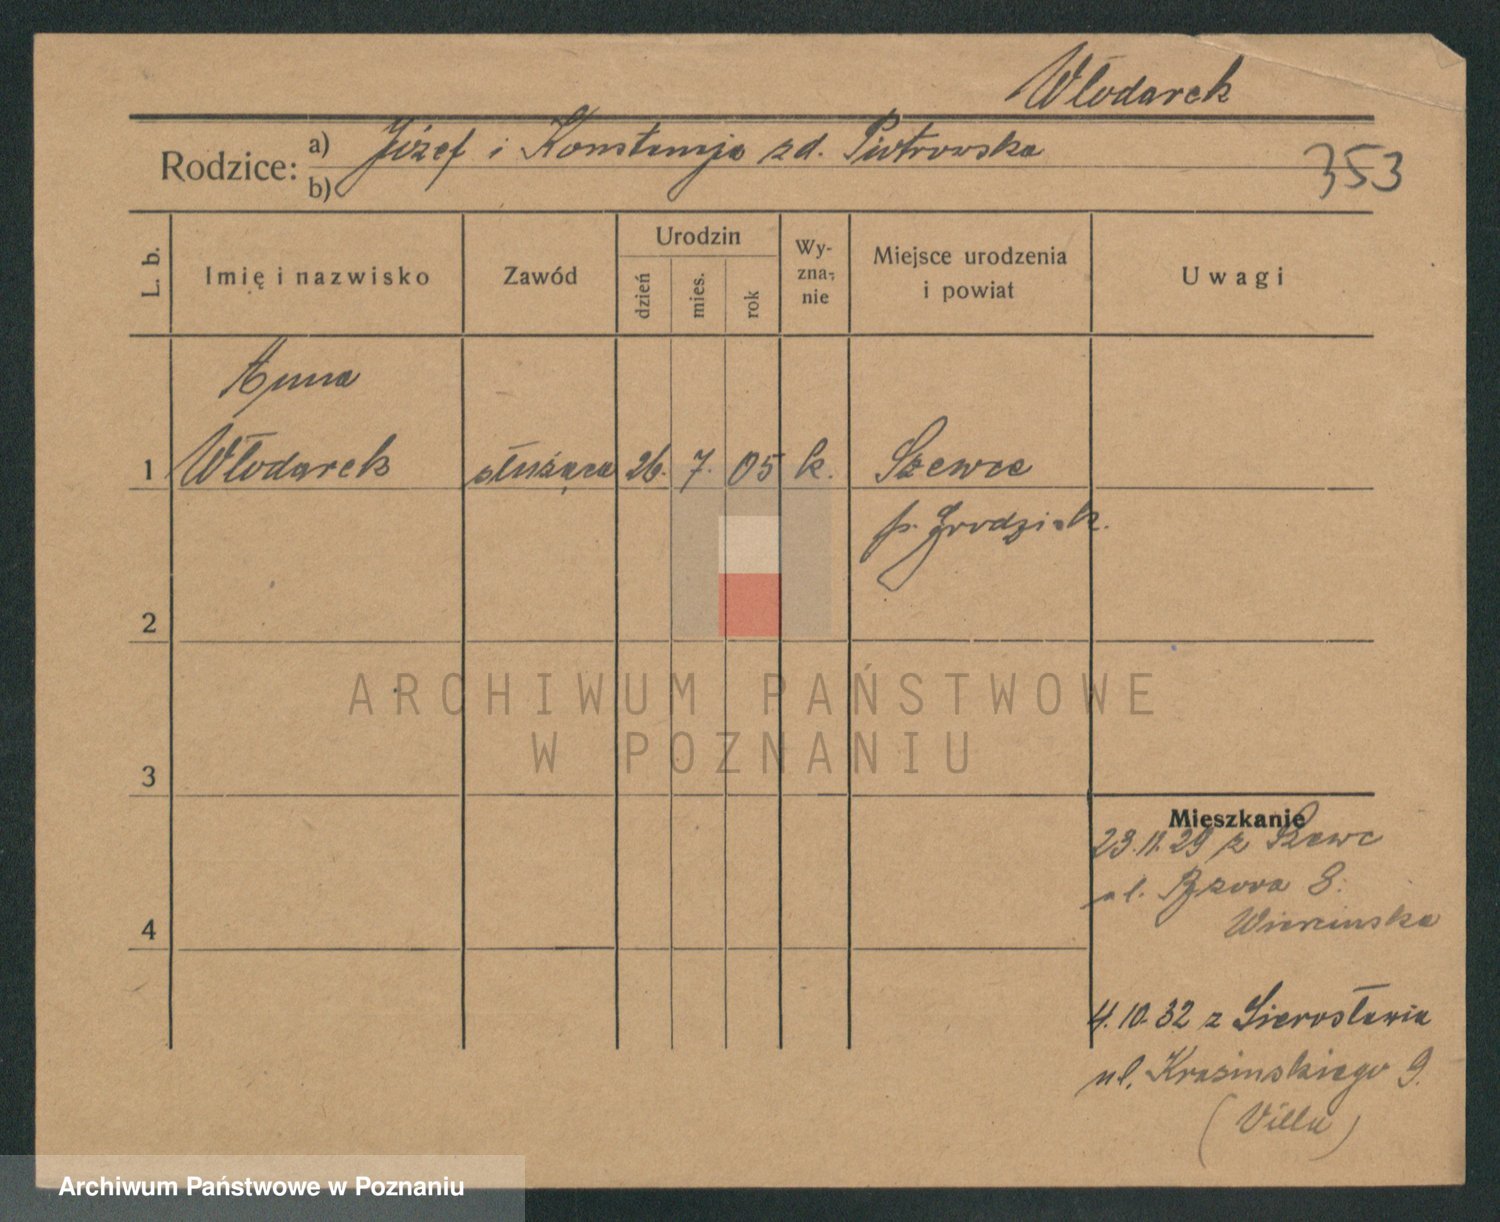 Włodarek
Rodzice: a) Józef i Konstancja zd. Piotrowska
b)
353
L. b.
Imię i nazwisko
Zawód
Urodzin
dzień
mies.
rok
Wy-
zna-
nie
Miejsce urodzenia
i powiat
Uwagi
Anna
1 Włodarek służąca 26. 7. 05 k. Szewce
p. Grodzisk.
2
ARCHIWUM PAŃSTWOWE
W POZNANIU
3
Mieszkanie
23.11.29 z Szewc
ul. 8.
4
4.10.32 z Sierosławia
ul. Krasińskiego 9.
(Villa)
Archiwum Państwowe w Poznaniu